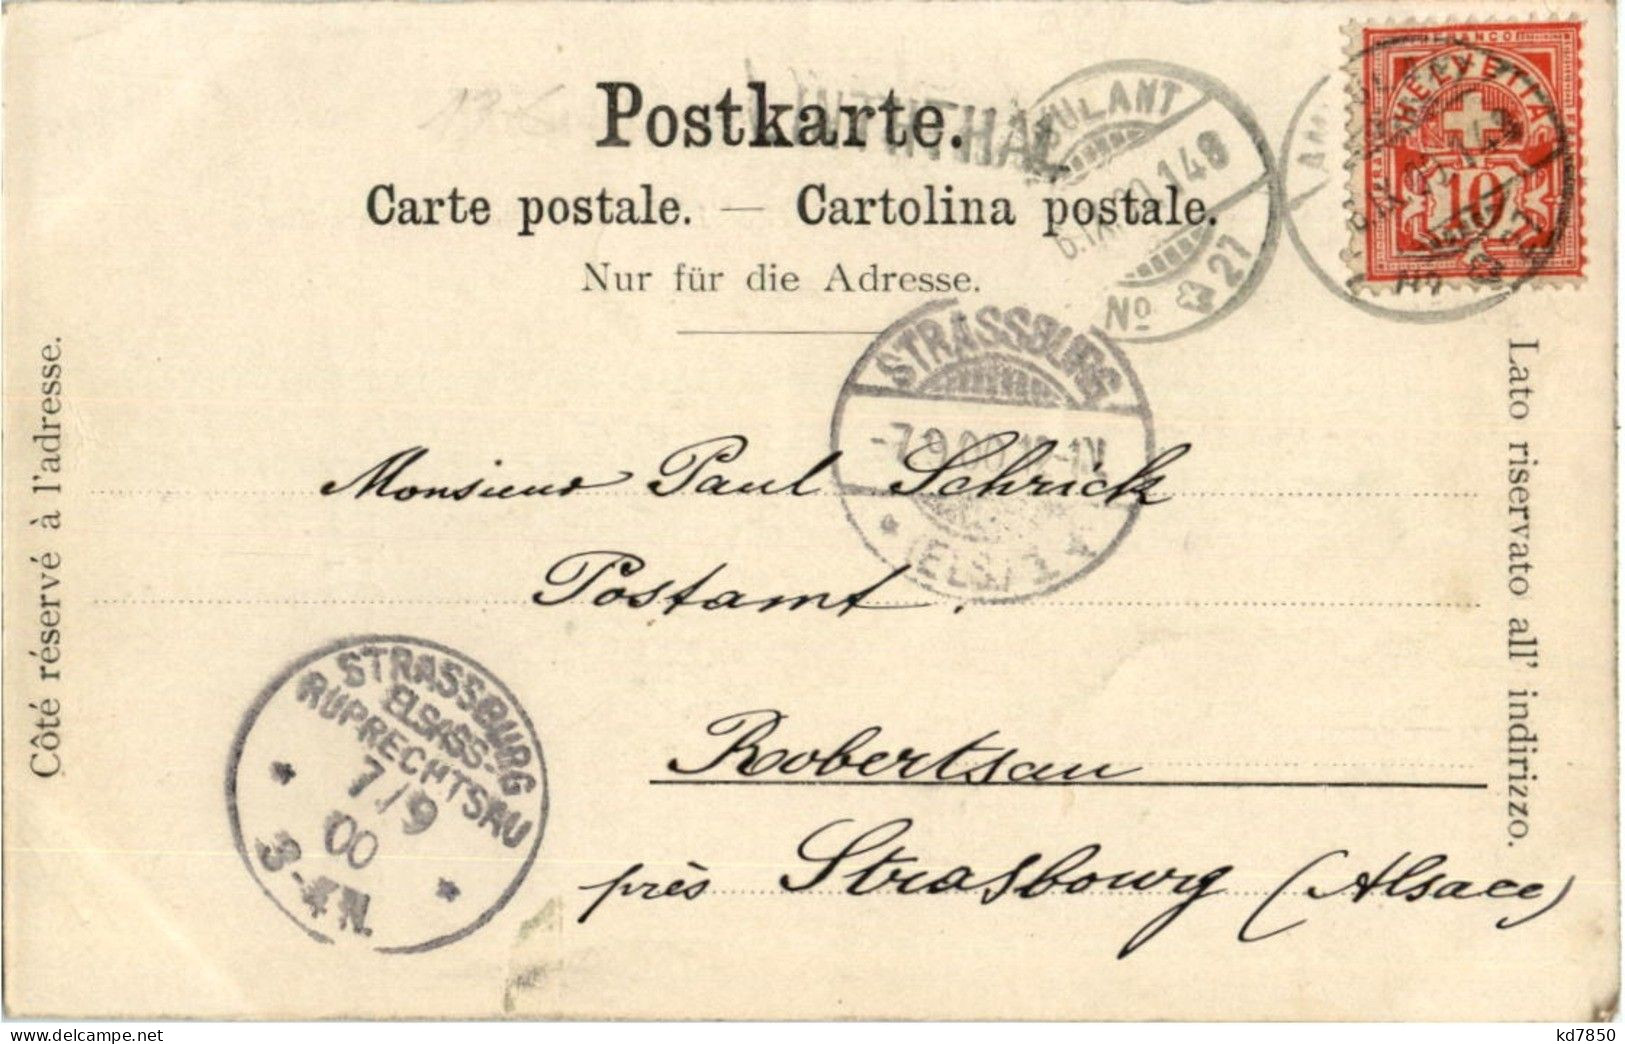 Postkarte.
Carte postale. — Cartolina postale.
Nur für die Adresse.
Côté réservé à l'adresse.
Lato riservato all' indirizzo.
FRANCO
HELVETIA
10
AMBULANT
6.IX.00.148
No 21
STRASSBURG
-7.9.00.12-1N
(ELS.) 1
Monsieur Paul Schrick
Postamt.
Robertsau
près Strasbourg (Alsace)
STRASSBURG
ELSASS-
RUPRECHTSAU
7/9
00
3-4N.
kd7850